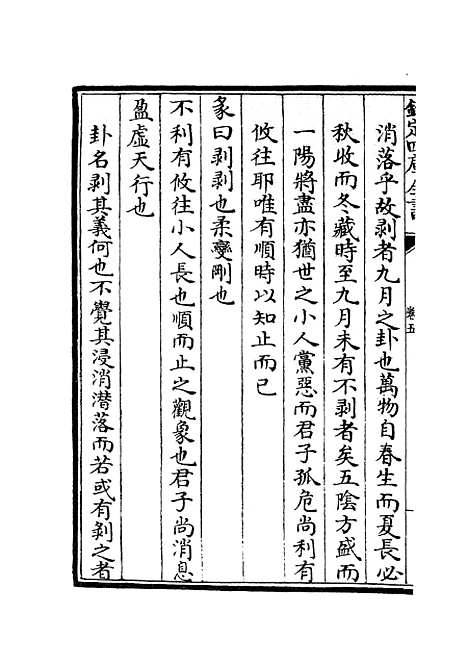 欽定四庫全書
卷五
消落乎故剥者九月之卦也萬物自春生而夏長必
秋收而冬藏時至九月未有不剥者矣五陰方盛而
一陽將盡亦猶世之小人黨惡而君子孤危尚利有
攸往耶唯有順時以知止而已
彖曰剥剥也柔變剛也
不利有攸往小人長也順而止之觀象也君子尚消息
盈虛天行也
卦名剥其義何也不覺其浸消潜落而若或有剥之者